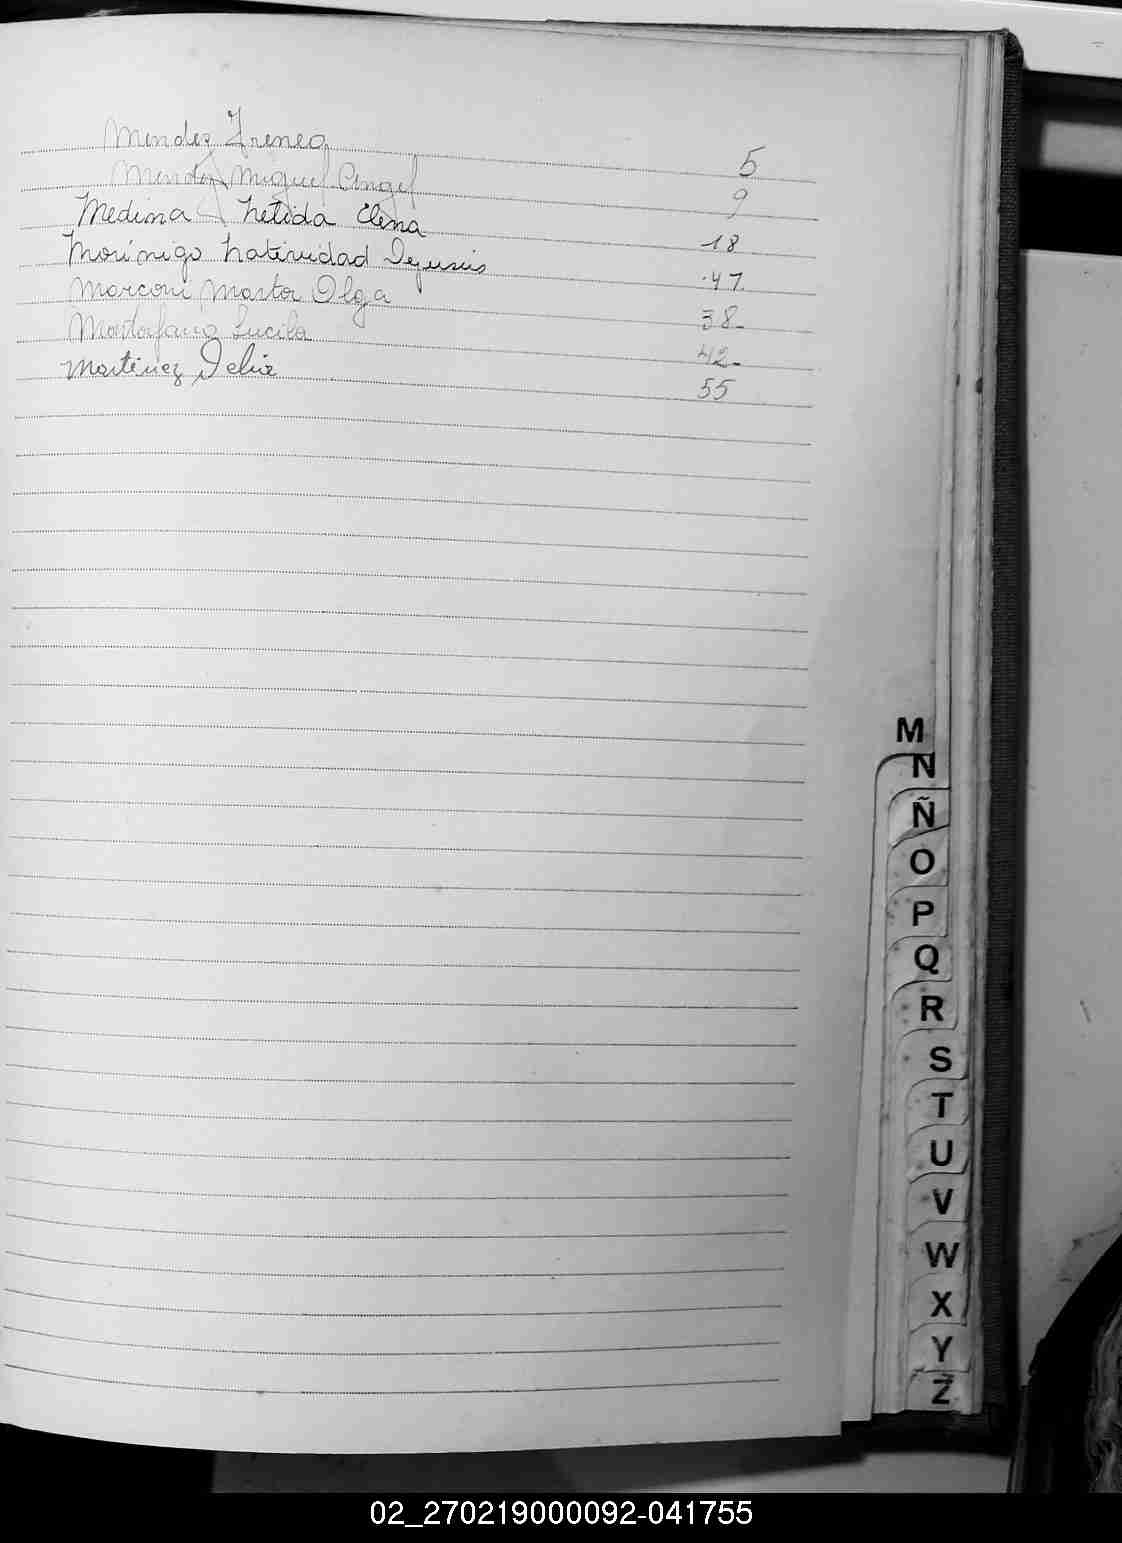 Mendez Ireneo 5
Mendez Miguel Angel 9
Medina Nélida Elena 18
Morínigo Natividad Dejesús 47
Marconi Marta Olga 38-
Lucila 42-
Martinez Delia 55
M
N
Ñ
O
P
Q
R
S
T
U
V
W
X
Y
Z
02_270219000092-041755